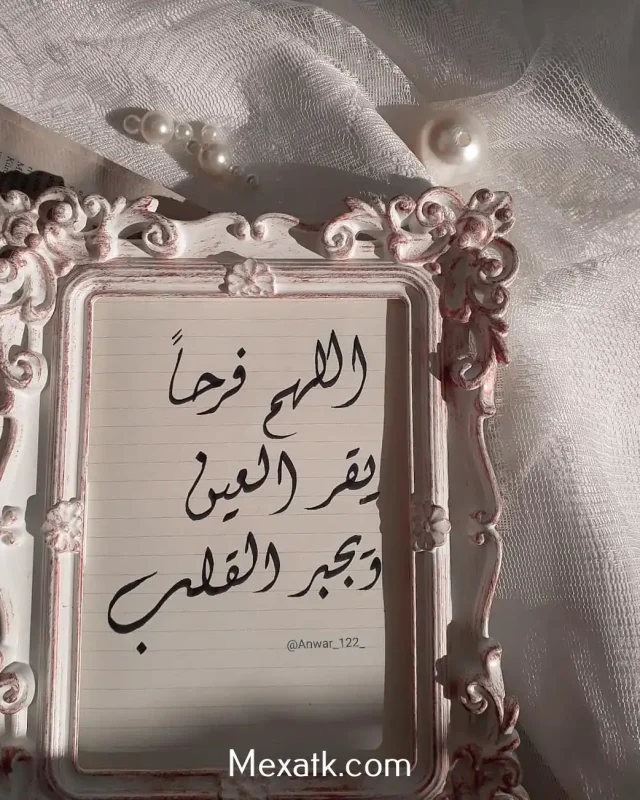 اللهم فرحاً
يقر العين
ويجبر القلب
@Anwar_122_
Mexatk.com